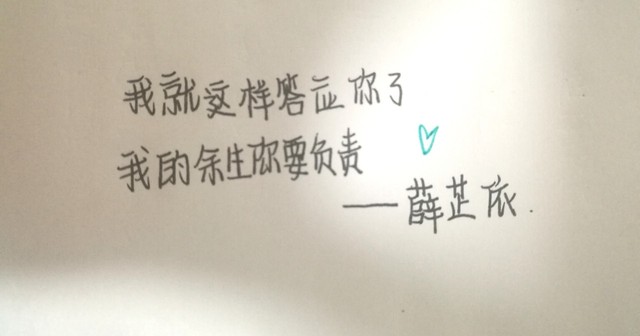 我就这样答应你了
我的余生你要负责
——薛芷依.